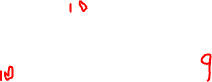 10
10 9